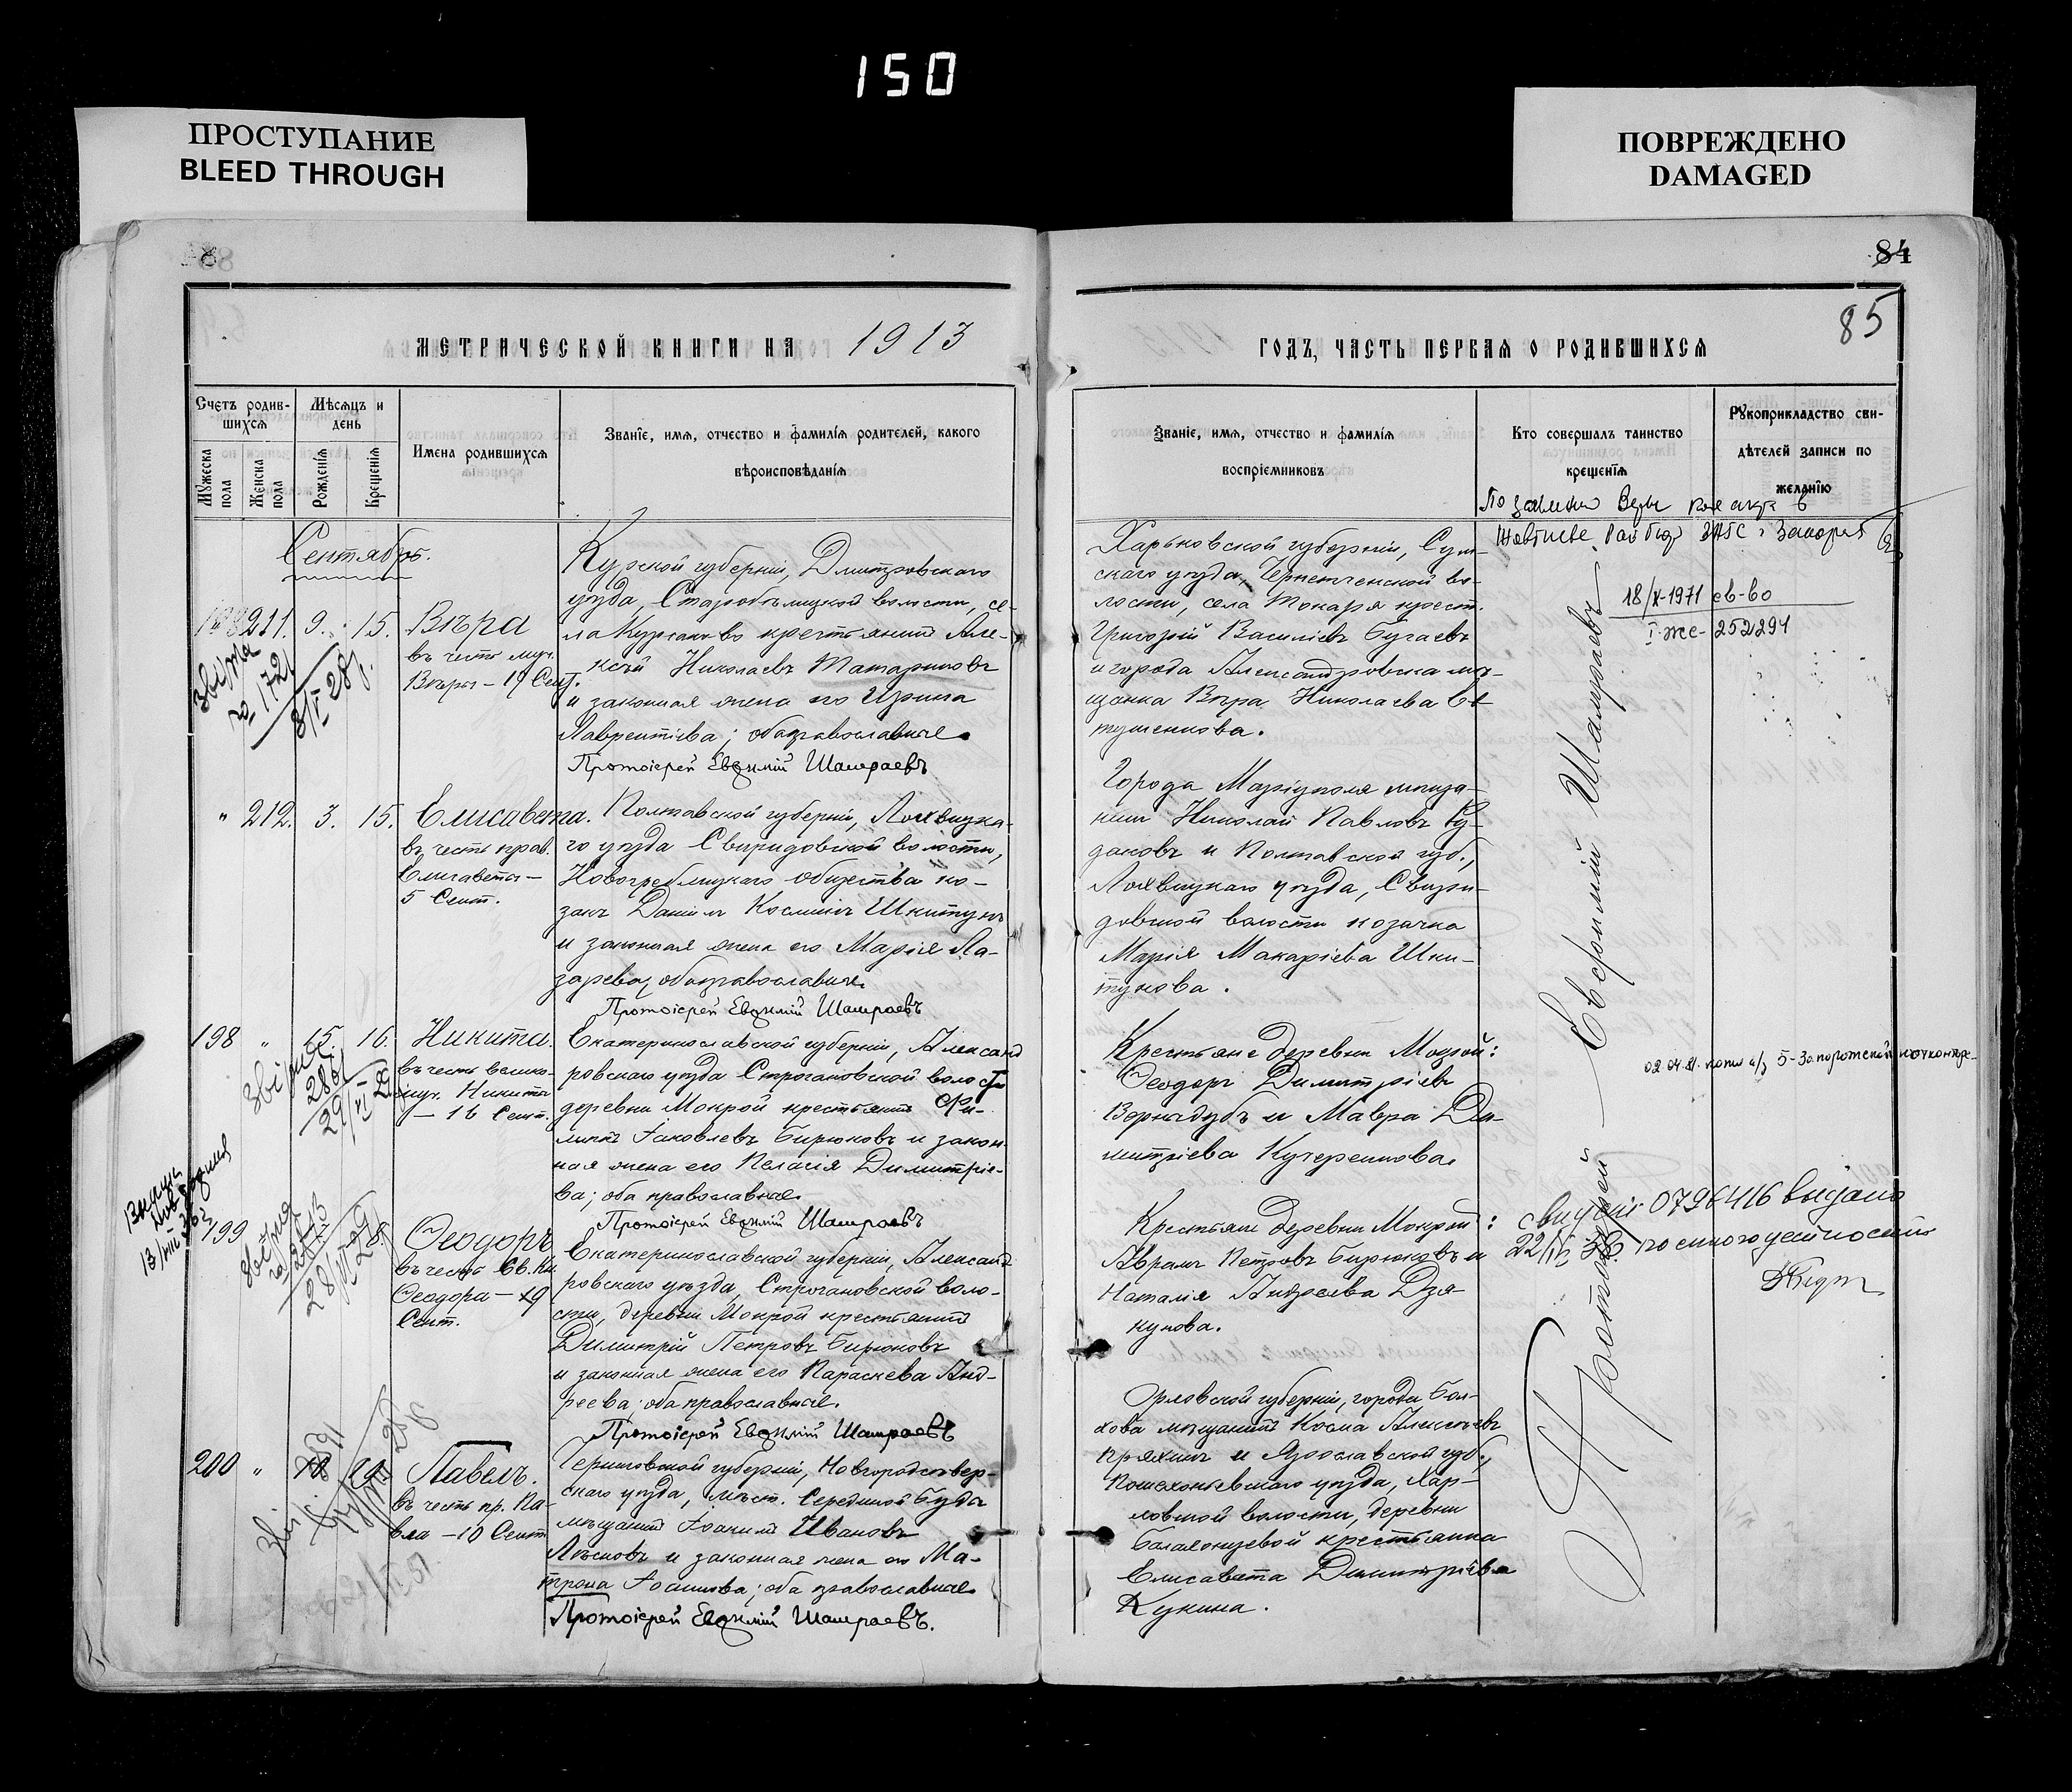 150
ПРОСТУПАНИЕ
BLEED THROUGH
ПОВРЕЖДЕНО
DAMAGED
84
85
МЕТРИЧЕСКОЙ КНИГИ НА 1913
ГОДЪ, ЧАСТЬ ПЕРВАЯ О РОДИВШИХСЯ
Счетъ родив-
шихся
Мѣсяцъ и
день
Мужеска
пола
Женска
пола
Рожденія
Крещенія
Имена родившихся
Званіе, имя, отчество и фамилія родителей, какого
вѣроисповѣданія
Званіе, имя, отчество и фамилія
воспріемниковъ
Кто совершалъ таинство
крещенія
Рукоприкладство сви-
дѣтелей записи по
желанію
Сентябрь.
211. 9. 15. Вѣра
въ честь муч.
Вѣры – 17 Сент.
Курской губерніи, Дмитровскаго
уѣзда, Старобѣлицкой волости, се-
ла крестьянинъ Але-
ксѣй Николаевъ Татариновъ
и законная жена его Ирина
Лаврентіева; оба православные.
Протоіерей Евѳимій Шамраевъ
Харьковской губерніи, Сум-
скаго уѣзда, во-
лости, села Токаря крест.
Григорій Василіевъ Бугаевъ
и города Александровска мѣ-
щанка Вѣра Николаева Ев-
тушенкова.
18/X-1971 св-во
I-ЖС- 252291
8/II 28
" 212. 3. 15. Елисавета.
въ честь прав.
Елисаветы –
5 Сент.
Полтавской губерніи, Лохвицка-
го уѣзда Свиридовской волости,
Новогреблицкаго общества ко-
закъ Даніилъ Космичъ Шкитунъ
и законная жена его Марія Ла-
зарева; оба православные.
Протоіерей Евѳимій Шамраевъ
Города Маріуполя мѣща-
нинъ Николай Павловъ
и Полтавской губ.,
Лохвицкаго уѣзда, Свири-
довской волости козачка
Марія Макаріева Шки-
тунова.
198 " 15. 16. Никита.
въ честь велико-
муч. Никиты
– 15 Сент.
Екатеринославской губерніи, Александ
ровскаго уѣзда Строгановской волости
деревни Мокрой крестьянинъ Фи-
липпъ Іаковлевъ Бирюковъ и закон-
ная жена его Пелагія Димитріе-
ва; оба православные.
Протоіерей Евѳимій Шамраевъ
Крестьяне деревни Мокрой:
Ѳеодоръ Димитріевъ
Вернидубъ и Мавра Ди-
митріева Кучеренкова.
199
Ѳеодоръ
въ честь Св. Кн.
Ѳеодора – 19
Сент.
Екатеринославской губерніи, Александ
ровскаго уѣзда, Строгановской воло-
сти, деревни Мокрой крестьянинъ
Димитрій Петровъ Бирюковъ
и законная жена его Параскева Анд-
реева; оба православные.
Протоіерей Евѳимій Шамраевъ
Крестьяне деревни Мокрой:
Авраамъ Петровъ Бирюковъ и
Наталія Андреева Дзя-
кунова.
0796416 видано
200 " Павелъ.
въ честь пр. Па-
вла – 10 Сент.
Черниговской губерніи, Новгородсѣвер-
скаго уѣзда, мѣст. Середина Буда
мѣщанинъ Іоакимъ Ивановъ
Лѣсковъ и законная жена его Ма-
трона Іоаннова; оба православные
Протоіерей Евѳимій Шамраевъ.
Орловской губерніи, города Бол-
хова мѣщанинъ Косма Алексѣевъ
Пряхинъ и Ярославской губ.,
Пошехоньевскаго уѣзда,
волости, деревни
крестьянка
Елисавета Димитріева
Кукина.
Протоіерей Евфимій Шамраевъ